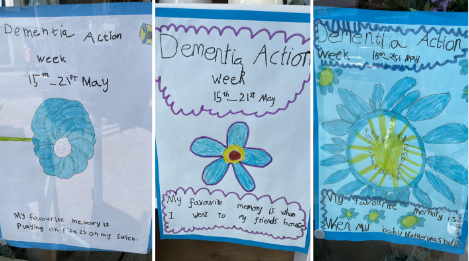 Dementia Action
Week
15th_21st May
My favourite memory is
playing on
on my
Dementia Action
Week
15th_21st May
My favourite memory is when
I went to my friends house
Dementia Action
Week 15th_21st May
My favourite memory is
Wen my baby